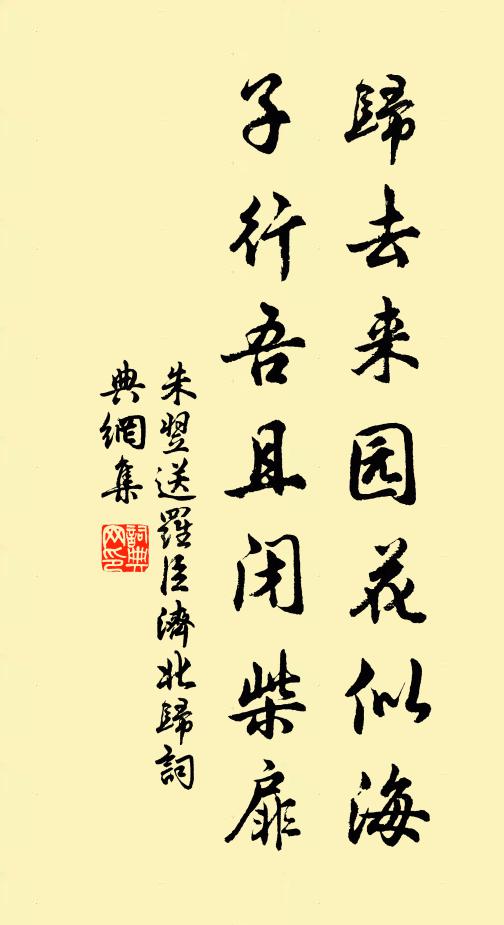 歸去来园花似海
子行吾且闭柴扉
朱翌送羅臣濟北歸詞
典網集
詞典
网印